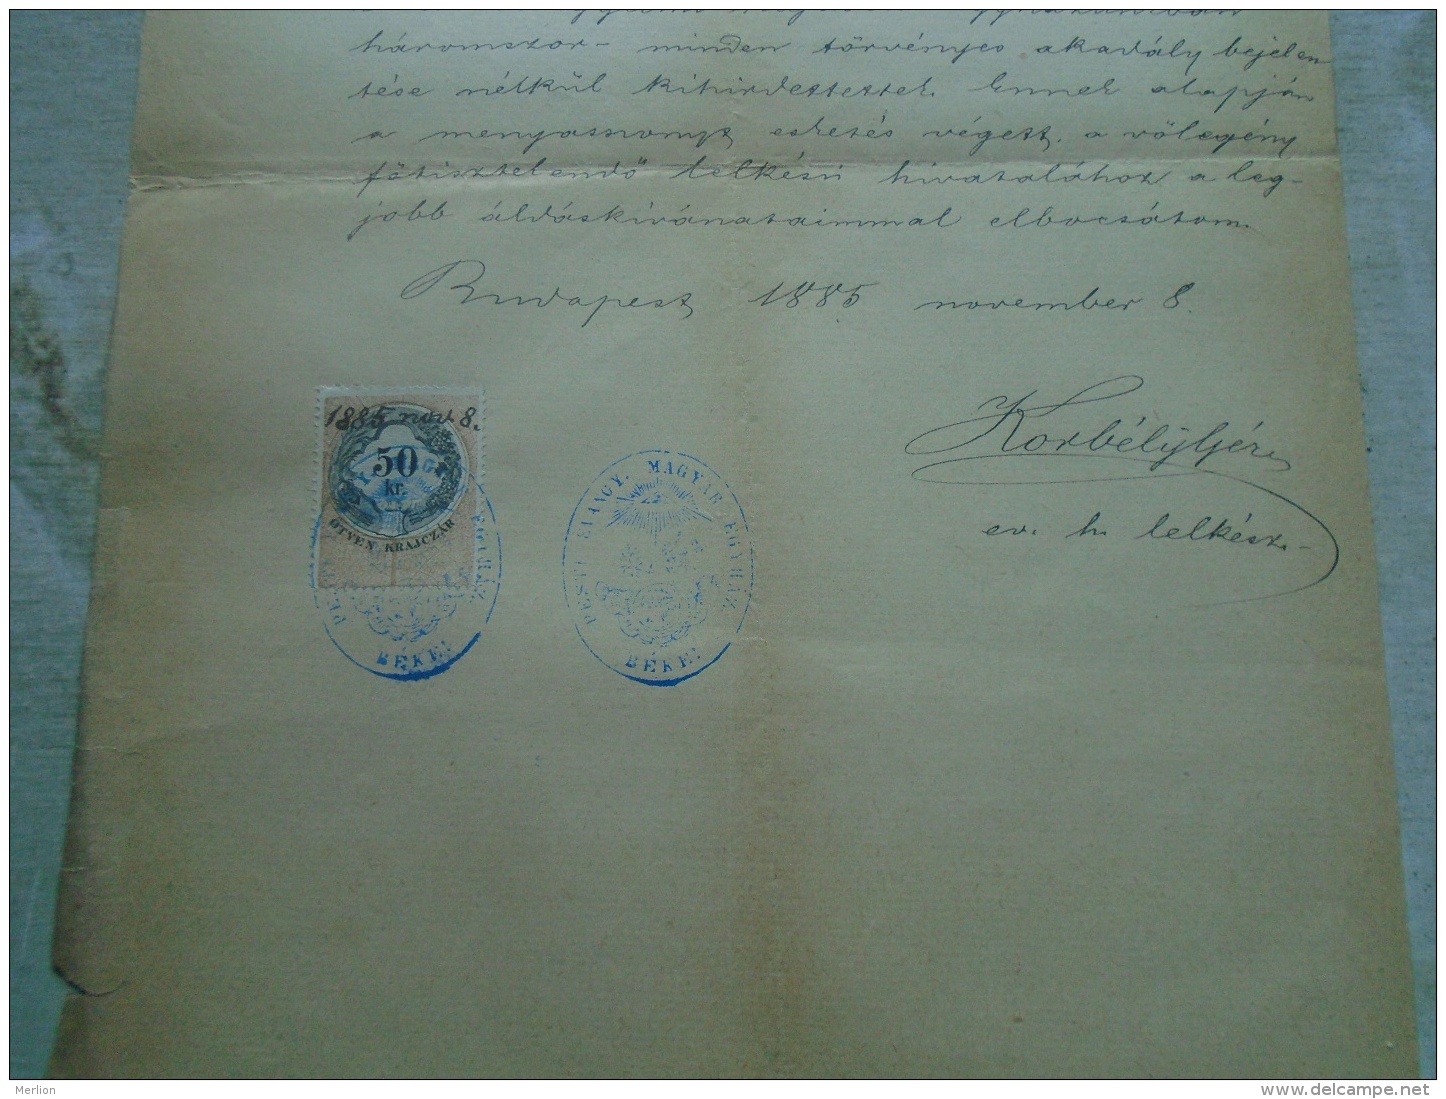 háromszor- minden törvényes akadály bejelen
tése nélkül kihirdettettek. Ennek alapján
a menyasszonyt esketés végett, a völegény
fötisztelendő lelkészi hivatalához a leg-
jobb áldáskivánataimmal elbocsátom.
Budapest 1885 november 8.
1885 nov 8.
50
kr.
ÖTVEN KRAJCZÁR
PESTI EVANGY. MAGYAR EGYHÁZ
BÉKE!
BÉKE!
Korbély Géza
ev. h. lelkész.-
Merlion
www.delcampe.net